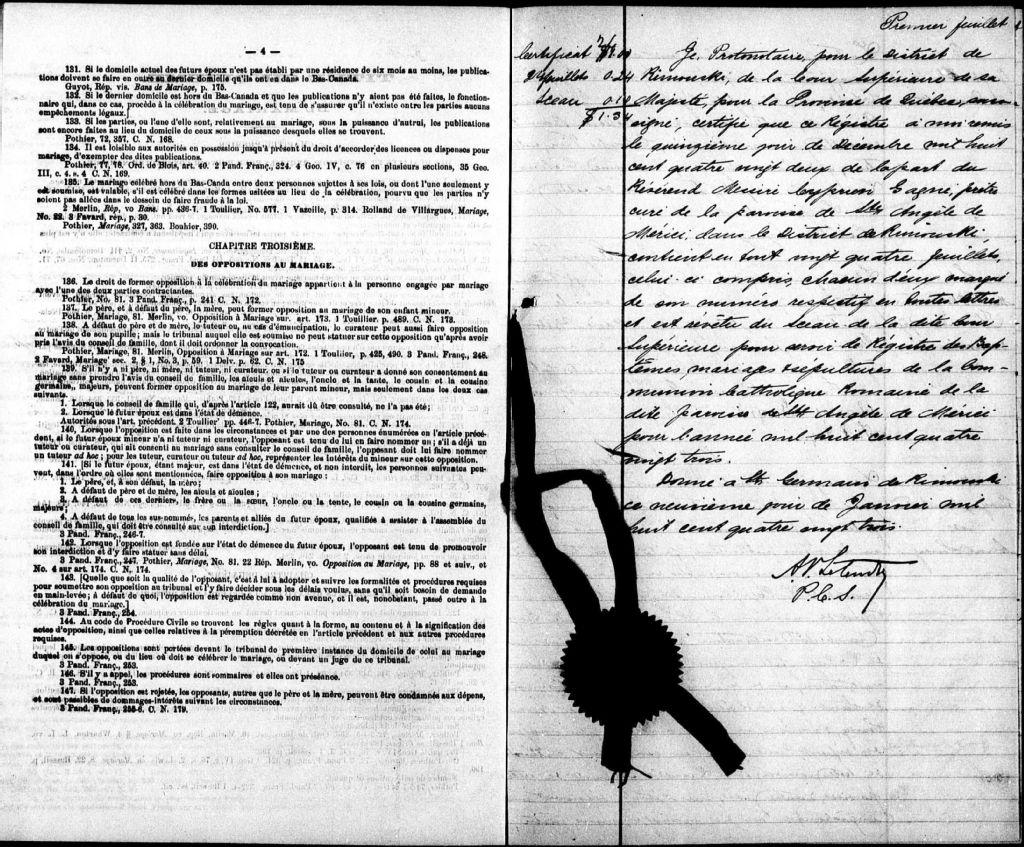 — 4 —
131. Si le domicile actuel des futurs époux n'est pas établi par une résidence de six mois au moins, les publica-
tions doivent se faire en outre au dernier domicile qu'ils ont eu dans le Bas-Canada.
Guyot, Rép. vis. Bans de Mariage, p. 175.
132. Si le dernier domicile est hors du Bas-Canada et que les publications n'y aient pas été faites, le fonction-
naire qui, dans ce cas, procède à la célébration du mariage, est tenu de s'assurer qu'il n'existe entre les parties aucuns
empêchements légaux.]
133. Si les parties, ou l'une d'elle sont, relativement au mariage, sous la puissance d'autrui, les publications
sont encore faites au lieu du domicile de ceux sous la puissance desquels elles se trouvent.
Pothier, 72, 357. C. N. 168.
134. Il est loisible aux autorités en possession jusqu'à présent du droit d'accorder des licences ou dispenses pour
mariage, d'exempter des dites publications.
Pothier, 77, 78. Ord. de Blois, art. 40. 2 Pand. Franç., 324. 4 Geo. IV, c. 76 en plusieurs sections, 35 Geo.
III, c. 4. s. 4 C. N. 169.
135. Le mariage célébré hors du Bas-Canda entre deux personnes sujettes à ses lois, ou dont l'une seulement y
est soumise, est valable, s'il est célébré dans les formes usitées au lieu de la célébration, pourvu que les parties n'y
soient pas allées dans le dessein de faire fraude à la loi.
2 Merlin, Rép, vo Bans. pp. 436-7. 1 Toullier, No. 577. 1 Vazeille, p. 314. Rolland de Villargues, Mariage,
No. 22. 3 Favard, rép., p. 30.
Pothier, Mariage, 327, 363. Bouhier, 390.
CHAPITRE TROISIÈME.
DES OPPOSITIONS AU MARIAGE.
136. Le droit de former opposition à la célébration du mariage appartient à la personne engagée par mariage
avec l'une des deux parties contractantes.
Pothier, No. 81. 3 Pand. Franç., p. 241 C. N. 172.
137. Le père, et à défaut du père, la mère, peut former opposition au mariage de son enfant mineur.
Pothier, Mariage, 81. Merlin, vo. Opposition à Mariage sur. art. 173. 1 Touillier. p. 489. C. N. 173.
138. A défaut de père et de mère, le tuteur ou, au cas d'émancipation, le curateur peut aussi faire opposition
au mariage de son pupille; mais le tribunal auquel elle est soumise ne peut statuer sur cette opposition qu'après avoir
pris l'avis du conseil de famille, dont il doit ordonner la convocation.
Pothier, Mariage, 81. Merlin, Opposition à Mariage sur art. 172. 1 Toulier, p. 425, 490. 3 Pand. Franç., 248.
2 Favard, Mariage sec. 2, § 1, No. 3, p. 59. 1 Delv. p. 62. C. N. 175
139. S'il n'y a ni père, ni mère, ni tuteur, ni curateur, ou si le tuteur ou curateur a donné son consentement au
mariage sans prendre l'avis du conseil de famille, les aïeuls et aïeules, l'oncle et la tante, le cousin et la cousine
germains, majeurs, peuvent former opposition au mariage de leur parent mineur, mais seulement dans les deux cas
suivants.
1. Lorsque le conseil de famille qui, d'après l'article 122, aurait dû être consulté, ne l'a pas été;
2. Lorsque le futur époux est dans l'état de démence.
Autorités sous l'art. précédent. 2 Toullier pp. 446-7. Pothier, Mariage, No. 81. C. N. 174.
140, Lorsque l'opposition est faite dans les circonstances et par une des personnes énumérées en l'article précé-
dent, si le futur époux mineur n'a ni tuteur ni curateur, l'opposant est tenu de lui en faire nommer un; s'il a déjà un
tuteur ou curateur, qui ait consenti au mariage sans consulter le conseil de famille, l'opposant doit lui faire nommer
un tuteur ad hoc; pour les tuteur, curateur ou tuteur ad hoc, représenter les intérêts du mineur sur cette opposition.
141. [Si le futur époux, étant majeur, est dans l'état de démence, et non interdit, les personnes suivantes peu-
vent, dans l'ordre où elles sont mentionnées, faire opposition à son mariage:
1. Le père, et, à son défaut, la mère;
2. A défaut de père et de mère, les aïeuls et aïeules;
3. A défaut de ces derniers, le frère ou la sœur, l'oncle ou la tante, le cousin ou la cousine germains,
majeurs;
4. A défaut de tous les sus-nommés, les parents et alliés du futur époux, qualifiés à assister à l'assemblée du
conseil de famille, qui doit être consulté sur son interdiction.]
3 Pand. Franç., 246-7.
142. Lorsque l'opposition est fondée sur l'état de démence du futur époux, l'opposant est tenu de promouvoir
son interdiction et d'y faire statuer sans délai.
3 Pand. Franç., 247. Pothier, Mariage, No. 81. 22 Rép. Merlin, vo. Opposition au Mariage, pp. 88 et suiv., et
No. 4 sur art 174. C. N. 174.
143. [Quelle que soit la qualité de l'opposant, c'est à lui à adopter et suivre les formalités et procédures requises
pour soumettre son opposition au tribunal et l'y faire décider sous les délais voulus, sans qu'il soit besoin de demande
en main-levée; à défaut de quoi, l'opposition est regardée comme non avenue, et il est, nonobstant, passé outre à la
célébration du mariage.]
3 Pand. Franç., 254.
144. Au code de Procédure Civile se trouvent les règles quant à la forme, au contenu et à la signification des
actes d'opposition, ainsi que celles relatives à la péremption décrétée en l'article précédent et aux autres procédures
requises.
145. Les oppositions sont portées devant le tribunal de première instance du domicile de celui au mariage
duquel on s'oppose, ou du lieu où doit se célébrer le mariage, ou devant un juge de ce tribunal.
3 Pand. Franç., 253.
146. S'il y a appel, les procédures sont sommaires et elles ont préséance.
3 Pand. Franç., 253.
147. Si l'opposition est rejetée, les opposants, autres que le père et la mère, peuvent être condamnés aux dépens,
et sont passibles de dommages-intérêts suivant les circonstances.
3 Pand. Franç., 255-6. C. N. 179.
Premier feuillet
Certificat $1.00
24 feuillets 0.24
Sceau 0.10
$1.34
Je, Protonotaire, pour le District de
Rimouski, de la Cour Supérieure de sa
Majesté, pour la Province de Québec, sous-
signé, certifie que ce Régistre à moi remis
le quinzième jour de decembre mil huit
cent quatre vingt deux de la part du
Révérend Messire Cyprien Gagné, prêtre
curé de la paroisse de Ste Angèle de
Mérici, dans le District de Rimouski,
contient en tout vingt quatre feuillets,
celui-ci compris, chacun d'eux marqué
de son numéro respectif en toutes lettres
et est revêtu du Sceau de la dite Cour
Supérieure pour servir de Régistre des Bap-
têmes, mariages & sépultures de la Com-
munion Catholique Romaine de la
dite paroisse de Ste Angèle de Mérici
pour l'année mil huit cent quatre
vingt trois.
Donné à St Germain de Rimouski
ce neuvième jour de Janvier mil
huit cent quatre vingt trois
P.C.S.